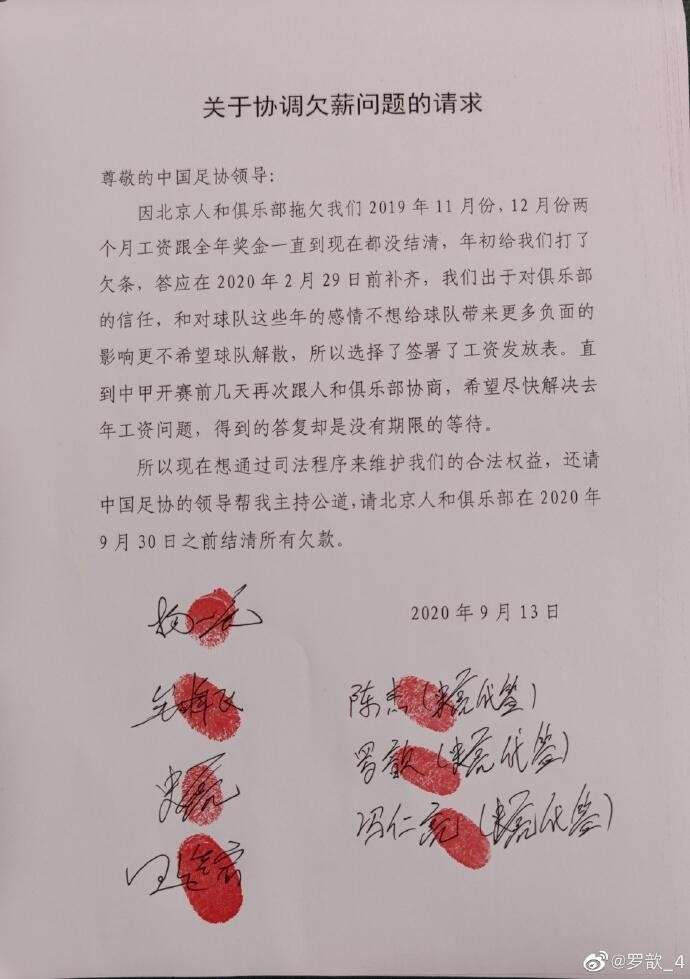 关于协调欠薪问题的请求
尊敬的中国足协领导：
因北京人和俱乐部拖欠我们2019年11月份、12月份两
个月工资跟全年奖金一直到现在都没结清，年初给我们打了
欠条，答应在2020年2月29日前补齐，我们出于对俱乐部
的信任，和对球队这些年的感情不想给球队带来更多负面的
影响更不希望球队解散，所以选择了签署了工资发放表。直
到中甲开赛前几天再次跟人和俱乐部协商，希望尽快解决去
年工资问题，得到的答复却是没有期限的等待。
所以现在想通过司法程序来维护我们的合法权益，还请
中国足协的领导帮我主持公道，请北京人和俱乐部在2020年
9月30日之前结清所有欠款。
2020年9月13日
陈杰(史亮代签)
罗歆(史亮代签)
史亮
冯仁亮(史亮代签)
@罗歆_4